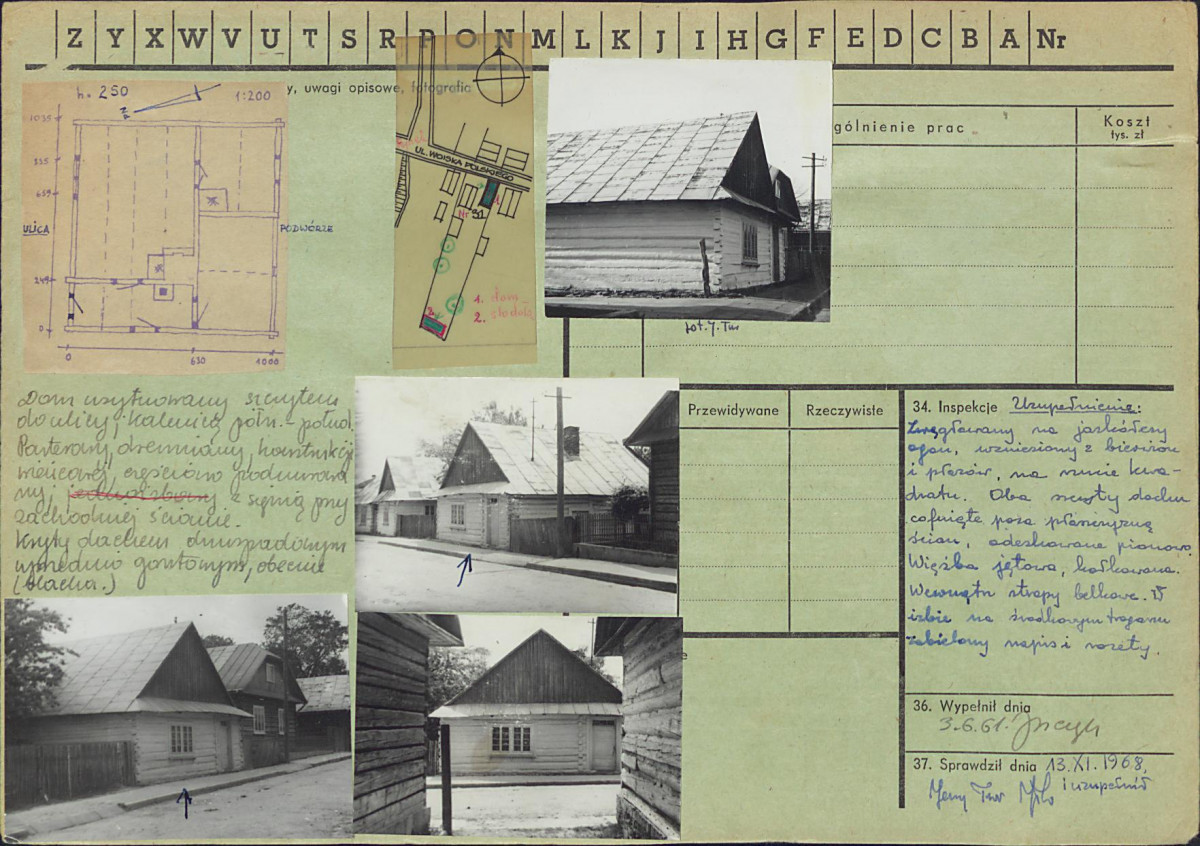 Z Y X W V U T S R P O N M L K J I H G F E D C B A Nr
y, uwagi opisowe, fotografia
h = 250
1:200
N
1035
835
659
ULICA
PODWÓRZE
249
0
0 630 1000
UL. WOJSKA POLSKIEGO
1.
Nr 91
2.
1.
2. stodoła
fot. J. Tur
gólnienie prac
Koszt
tys. zł
Dom usytuowany szczytem
do ulicy; kalenicą półn. - połud.
Parterowy, drewniany, konstrukcji
wieńcowej, częściowo podmurowa
ny, z sienią przy
zachodniej ścianie.
Kryty dachem dwuspadowym
uprzednio gontowym, obecnie
(blacha.)
Przewidywane
Rzeczywiste
e
34. Inspekcje Uzupełnienie:
Zwęgłowany na jaskółczy
ogon, wzniesiony z bierwion
i płazów, na rzucie kwa-
dratu. Oba szczyty dachu
cofnięte poza płaszczyznę
ścian, odeskowane pionowo.
Więźba jętowa, kołkowana.
Wewnątrz stropy belkowe. W
izbie na środkowym tragarzu
zabielony napis i rozety.
36. Wypełnił dnia
3.6.61.
37. Sprawdził dnia 13.XI.1968,
i uzupełnił
Jerzy Tur